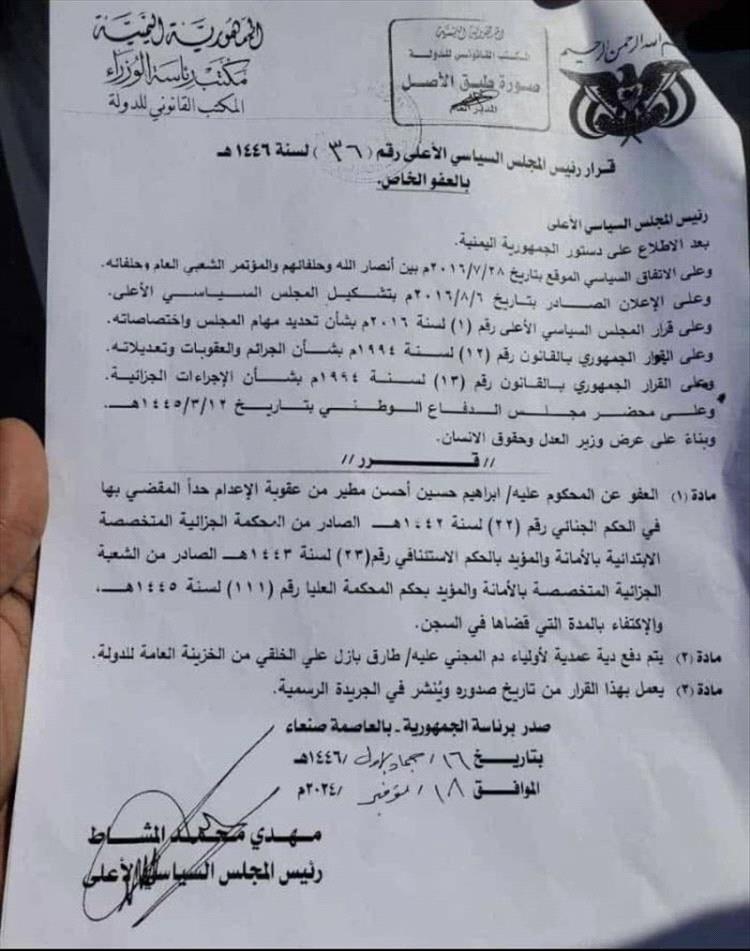 بسم الله الرحمن الرحيم
الجمهورية اليمنية
مكتب رئاسة الوزراء
المكتب القانوني للدولة
الجمهورية اليمنية
المكتب القانوني للدولة
صورة طبق الأصل
المدير العام
قرار رئيس المجلس السياسي الأعلى رقم (٣٦) لسنة ١٤٤٦هـ
بالعفو الخاص.
رئيس المجلس السياسي الأعلى
بعد الاطلاع على دستور الجمهورية اليمنية.
وعلى الاتفاق السياسي الموقع بتاريخ ٢٠١٦/٧/٢٨م بين أنصار الله وحلفائهم والمؤتمر الشعبي العام وحلفائه.
وعلى الإعلان الصادر بتاريخ ٢٠١٦/٨/٦م بتشكيل المجلس السياسي الأعلى.
وعلى قرار المجلس السياسي الأعلى رقم (١) لسنة ٢٠١٦م بشأن تحديد مهام المجلس واختصاصاته.
وعلى القرار الجمهوري بالقانون رقم (١٢) لسنة ١٩٩٤م بشأن الجرائم والعقوبات وتعديلاته.
وعلى القرار الجمهوري بالقانون رقم (١٣) لسنة ١٩٩٤م بشأن الإجراءات الجزائية.
وعلى محضر مجلس الدفاع الوطني بتاريخ ١٤٤٥/٣/١٢هـ.
وبناءً على عرض وزير العدل وحقوق الانسان.
// قـــرر //
مادة (١) العفو عن المحكوم عليه/ ابراهيم حسين أحسن مطير من عقوبة الإعدام حداً المقضي بها
في الحكم الجنائي رقم (٢٢) لسنة ١٤٤٢هـ الصادر من المحكمة الجزائية المتخصصة
الابتدائية بالأمانة والمؤيد بالحكم الاستئنافي رقم(٢٣) لسنة ١٤٤٣هـ الصادر من الشعبة
الجزائية المتخصصة بالأمانة والمؤيد بحكم المحكمة العليا رقم (١١١) لسنة ١٤٤٥هـ،
والإكتفاء بالمدة التي قضاها في السجن.
مادة (٢) يتم دفع دية عمدية لأولياء دم المجني عليه/ طارق بازل علي الخلقي من الخزينة العامة للدولة.
مادة (٣) يعمل بهذا القرار من تاريخ صدوره ويُنشر في الجريدة الرسمية.
صدر برئاسة الجمهورية ـ بالعاصمة صنعاء
بتاريخ ١٦/ جماد الأول /١٤٤٦هـ
الموافق ١٨/ نوفمبر /٢٠٢٤م
مهدي محمد المشاط
رئيس المجلس السياسي الأعلى